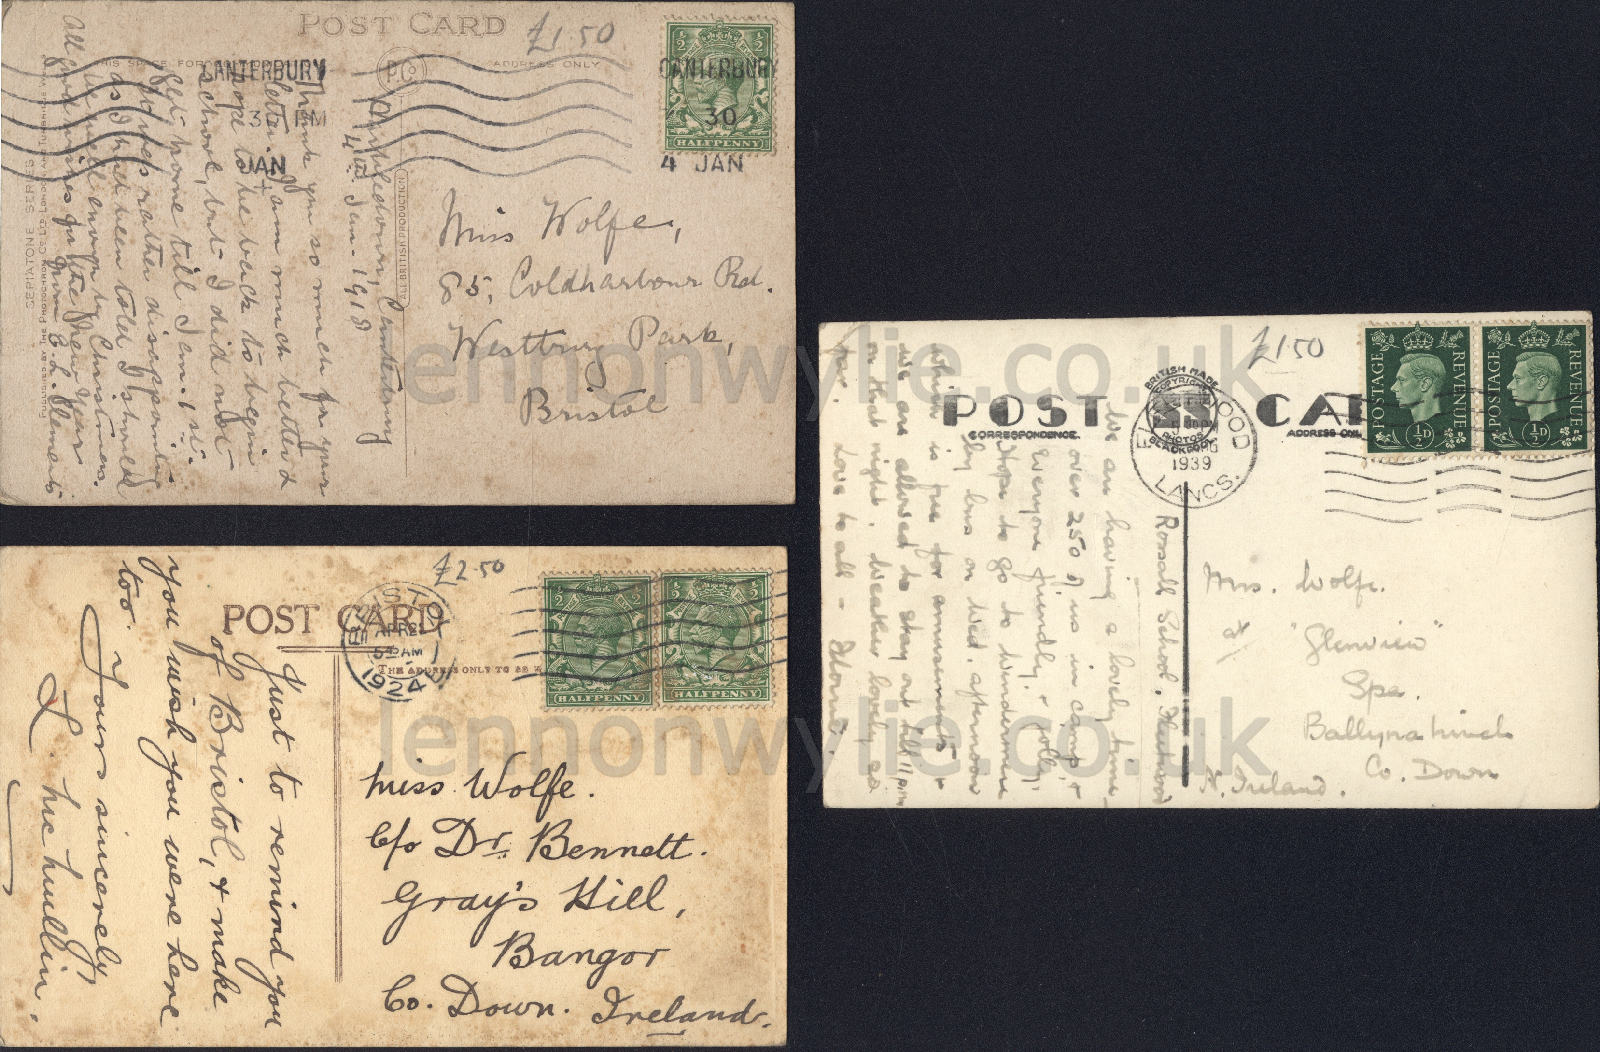 POST CARD
£1.50
THIS SPACE FOR
ADDRESS ONLY
P.Co
CANTERBURY
3 PM
JAN
CANTERBURY
30
4 JAN
HALFPENNY
SEPIATONE SERIES
ALL BRITISH PRODUCTION
Canterbury
4th Jan. 1918
Thank you so much for your
letter I am much better &
hope to be back to begin
school, but I did not
get home till Jan. 1st.
rather disappointing
as I had been told I should
be well enough by Christmas.
All good wishes for the New Year
from E. L. Clements
Miss Wolfe,
85, Coldharbour Rd.
Westbury Park,
Bristol
POST CARD
£2.50
THE ADDRESS ONLY TO BE
BRISTOL
APR 2
5 AM
1924
HALFPENNY
HALFPENNY
Just to remind you
of Bristol, & make
you wish you were here
too.
Yours sincerely
L. McMullin.
Miss Wolfe.
c/o Dr. Bennett.
Gray's Hill,
Bangor
Co. Down. Ireland.
POST CA
£1.50
CORRESPONDENCE.
ADDRESS ONL
BRITISH MADE
COPYRIGHT
PHOTOS
1939
LANCS.
POSTAGE REVENUE
½D
POSTAGE REVENUE
½D
Rossall School. Fleetwood
We are having a lovely time -
over 250 of us in camp, &
everyone friendly & jolly.
Hope to go to Windermere
by bus on Wed. afternoon
which is free for amusements &
we are allowed to stay out till 11 p.m.
on that night. Weather lovely so
far. Love to all -
Mrs. Wolfe.
at "Glenview"
Spa.
Ballynahinch
Co. Down
N. Ireland.
lennonwylie.co.uk
lennonwylie.co.uk